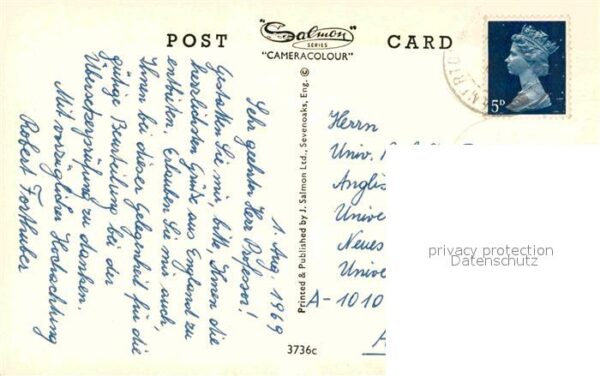 POST CARD
Salmon
SERIES
"CAMERACOLOUR"
5D
1. Aug. 1969
Sehr geehrter Herr Professor!
Gestatten Sie mir, bitte, Ihnen die
herzlichsten Grüße aus England zu
entbieten. Erlauben Sie mir auch,
Ihnen bei dieser Gelegenheit für die
gütige Beurteilung bei der
Übersetzerprüfung zu danken.
Mit vorzüglicher Hochachtung
Robert Forthuber
Printed & Published by J. Salmon Ltd., Sevenoaks, Eng. ©
Herrn
Univ.
Anglis
Unive
Neues
Unive
A-1010
3736c
privacy protection
Datenschutz